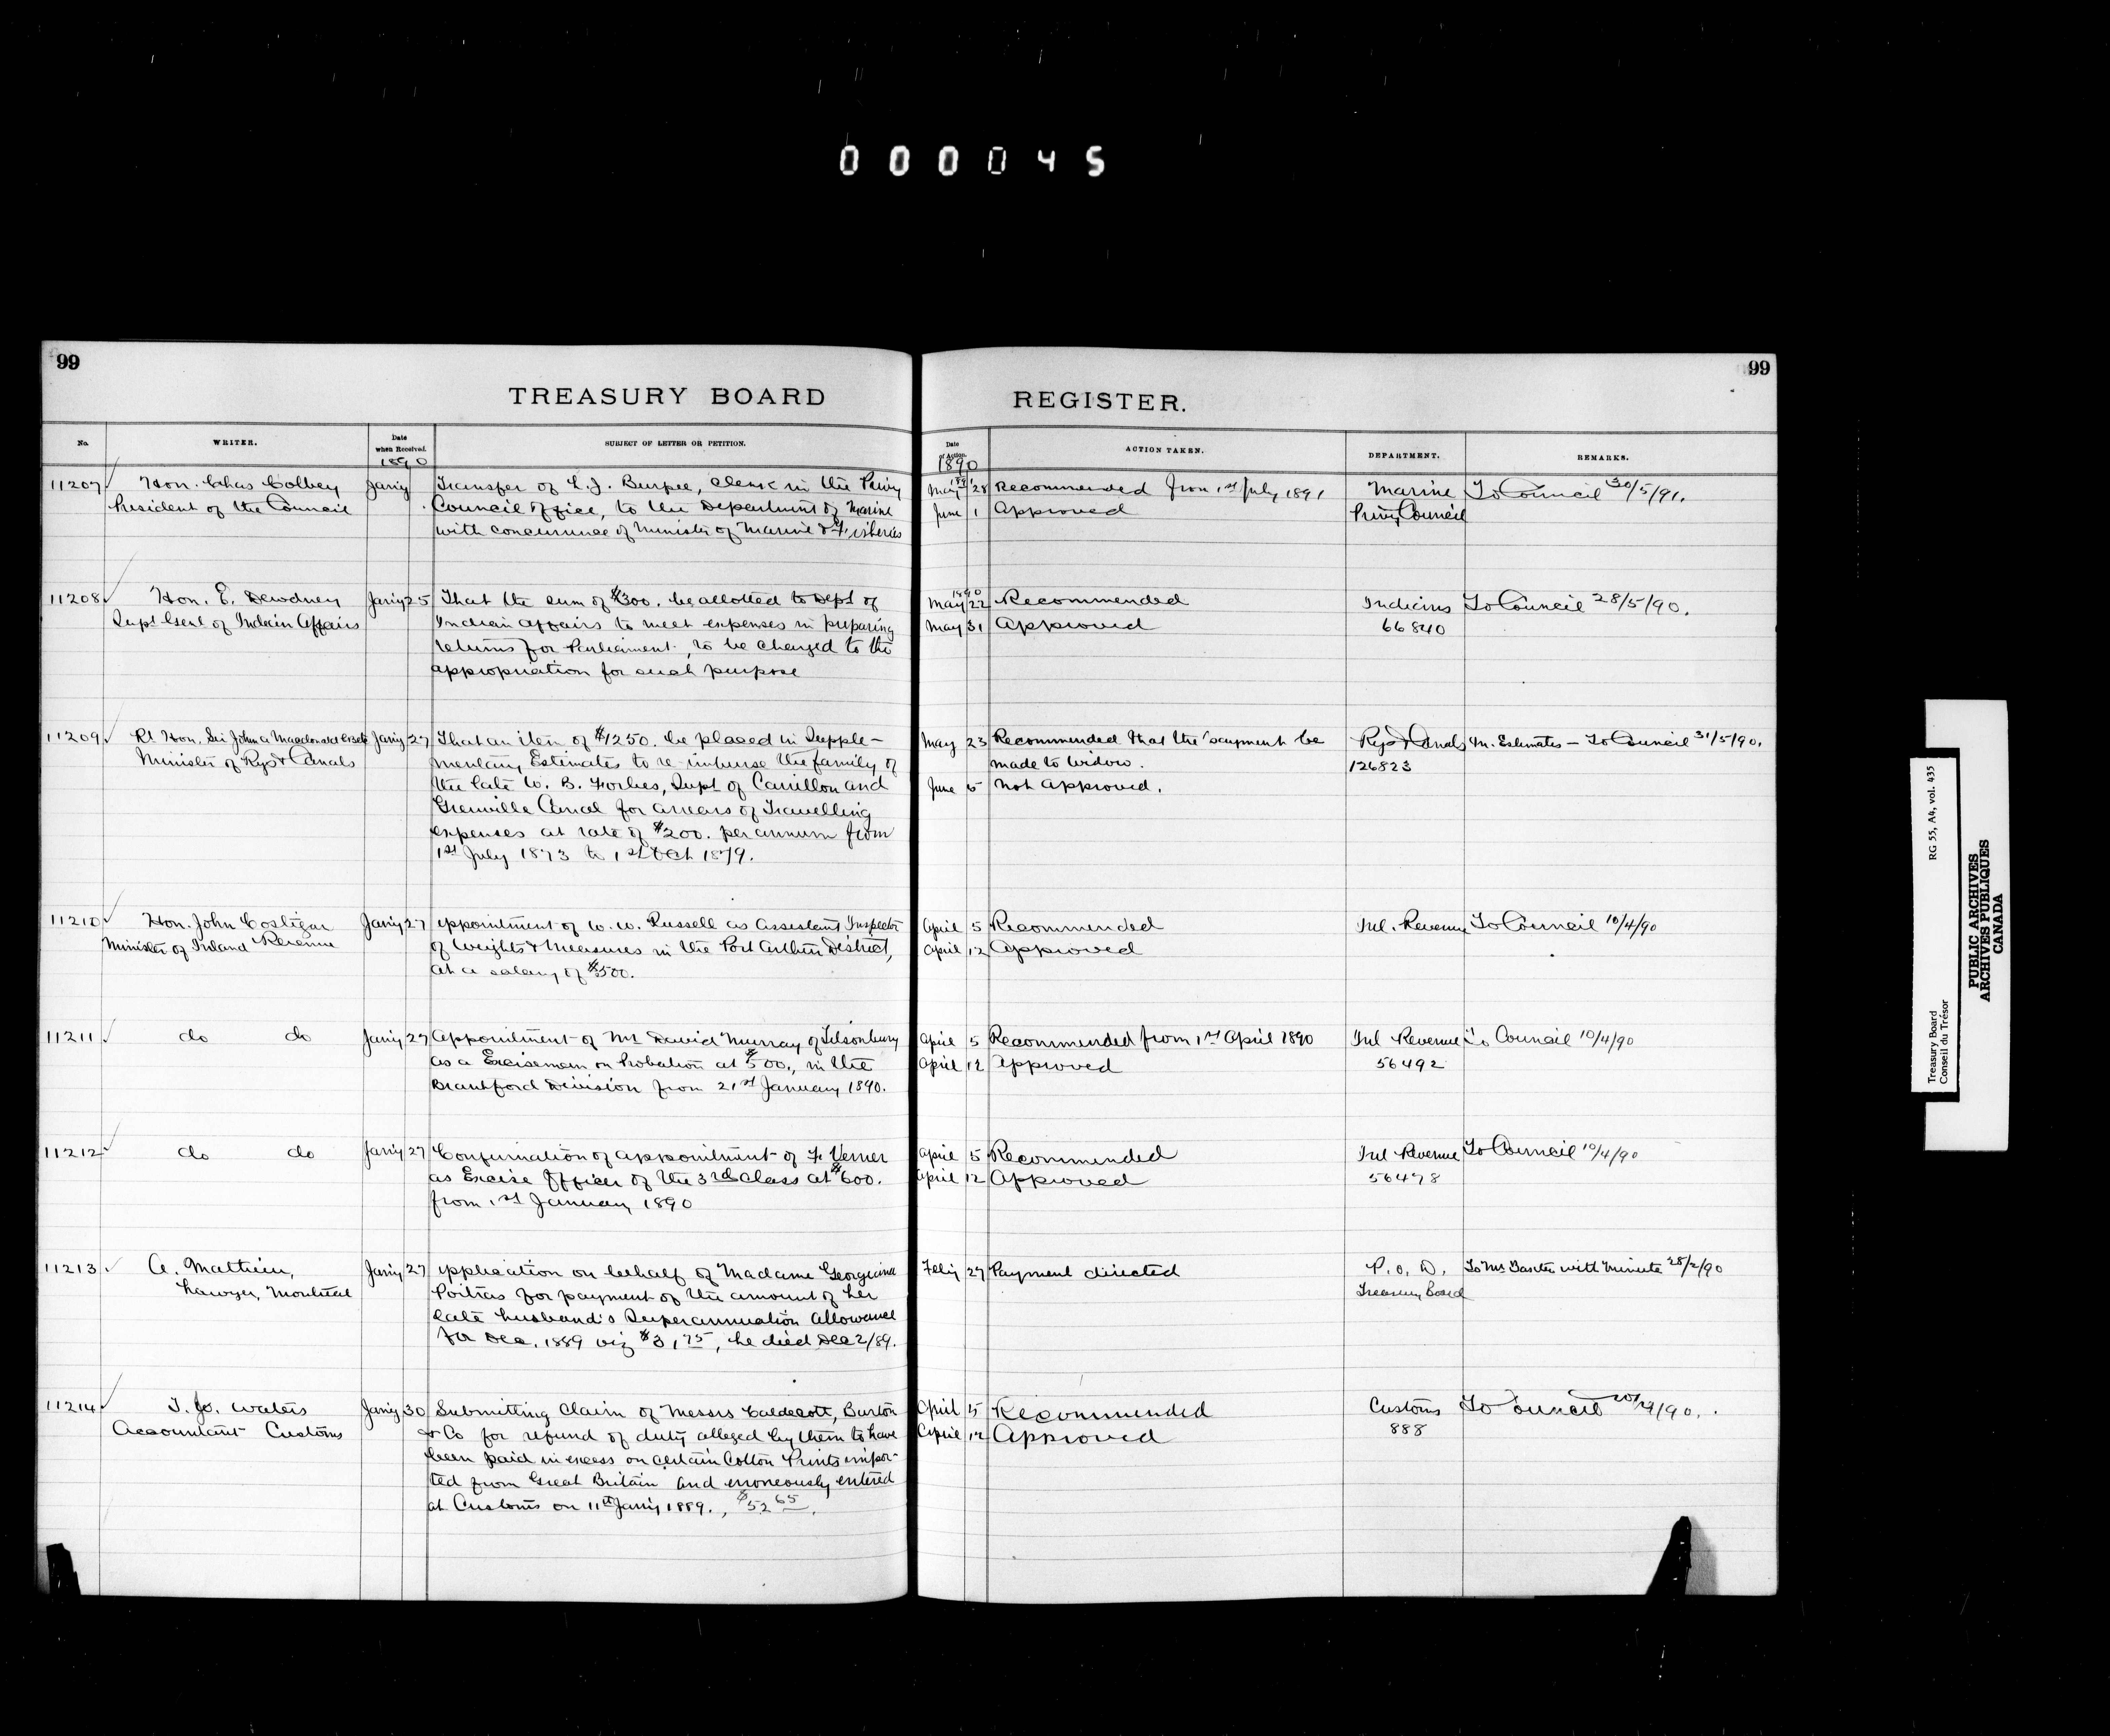 0 0 0 0 4 5
99
99
TREASURY BOARD
REGISTER.
No.
WRITER.
Date when Received.
SUBJECT OF LETTER OR PETITION.
Date of Action.
ACTION TAKEN.
DEPARTMENT.
REMARKS.
1890
1890
11207
Hon. Chas Colbey
President of the Council
Jan'y
Transfer of L. J. Burpee, Clerk in the Privy
Council Office, to the Department of Marine
with concurrence of Minister of Marine & Fisheries
1891
May 28
Recommended from 1st July 1891
June 1
Approved
Marine
Privy Council
To Council 30/5/91.
11208
Hon. E. Dewdney
Supt Genl of Indian Affairs
Jan'y 25
That the sum of $300. be allotted to Dept of
Indian Affairs to meet expenses in preparing
returns for Parliament, to be charged to the
appropriation for such purpose
1890
May 22
Recommended
May 31
Approved
Indians
66840
To Council 28/5/90.
11209
Rt Hon. Sir John A Macdonald
Minister of Rys & Canals
Jan'y 27
That an item of $1250. be placed in Supple-
mentary Estimates to re-imburse the family of
the late W. B. Forbes, Supt of Carillon and
Grenville Canal for arrears of Travelling
expenses at rate of $200. per annum from
1st July 1873 to 1st Oct 1879.
May 23
Recommended that the payment be
made to widow.
June 5
not approved.
Rys & Canals
126823
In. Estimates — To Council 31/5/90.
11210
Hon. John Costigan
Minister of Inland Revenue
Jan'y 27
Appointment of W. W. Russell as Assistant Inspector
of Weights & Measures in the Port Arthur District,
at a salary of $500.
April 5
Recommended
April 12
Approved
Inl. Revenue
To Council 10/4/90
11211
do do
Jan'y 27
Appointment of Mr David Murray of Tilsonbury
as a Exciseman on Probation at $500., in the
Brantford Division from 21st January 1890.
April 5
Recommended from 1st April 1890
April 12
Approved
Inl Revenue
56492
To Council 10/4/90
11212
do do
Jan'y 27
Confirmation of appointment of F. Verner
as Excise Officer of the 3rd class at $600.
from 1st January 1890
April 5
Recommended
April 12
Approved
Inl Revenue
56478
To Council 10/4/90
11213
A. Mathieu,
Lawyer, Montreal
Jan'y 27
Application on behalf of Madame Georgiana
Poitras for payment of the amount of her
late husband's Superannuation Allowance
for Dec. 1889 viz $31.75, he died Dec 2/89.
Feb'y 27
Payment directed
P. O. D.
Treasury Board
To Mr with minute 28/2/90
11214
Waters
Accountant Customs
Jan'y 30
Submitting Claim of Messrs Caldecott, Burton
& Co for refund of duty alleged by them to have
been paid in excess on certain Cotton Prints impor-
ted from Great Britain and erroneously entered
at Customs on 11th Jan'y 1889., $52.65.
April 5
Recommended
April 12
Approved
Customs
888
To Council
Treasury Board
Conseil du Trésor
RG 55, A4, vol. 435
PUBLIC ARCHIVES
ARCHIVES PUBLIQUES
CANADA